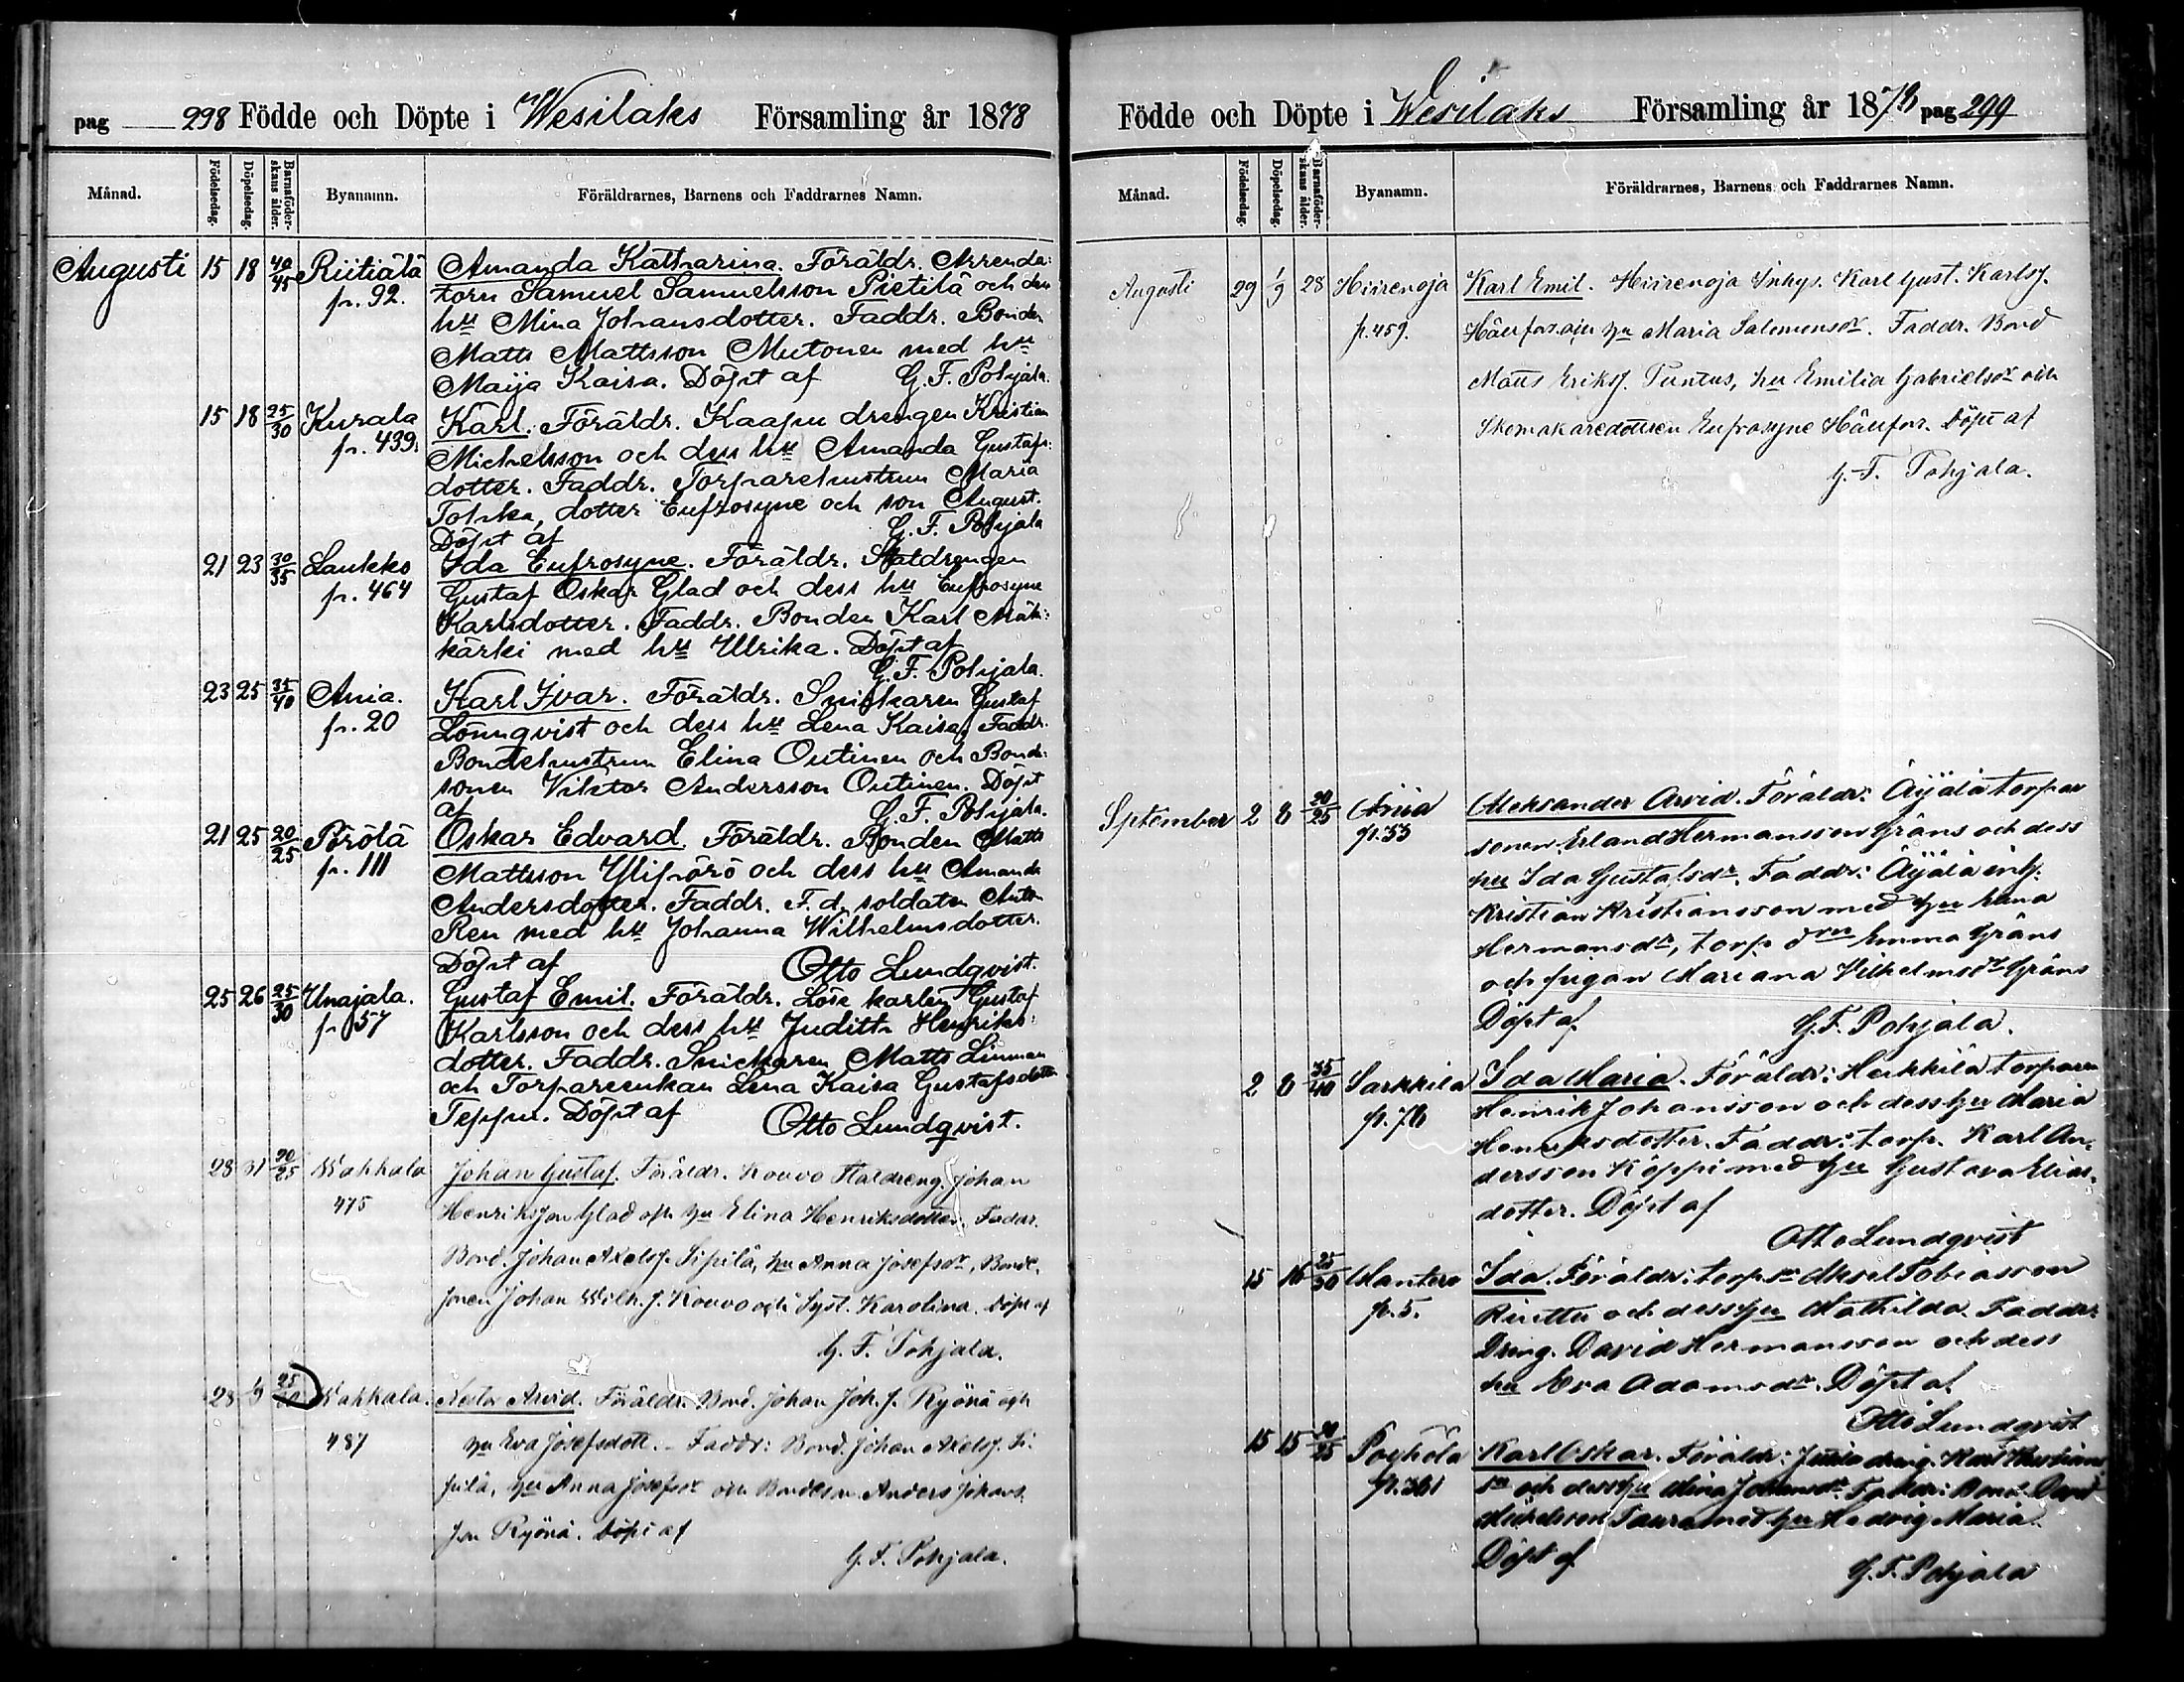 pag 298 Födde och Döpte i Wesilaks Församling år 1878
Månad. Födelsedag. Döpelsedag. Barnaföderskans ålder. Byanamn. Föräldrarnes, Barnens och Faddrarnes Namn.
Augusti 15 18 40/45 Riitiälä Amanda Katharina. Föräldr. Arrenda:
p. 92. torn Samuel Samuelsson Pietilä och dess
hu Mina Johansdotter. Faddr. Bonden
Matts Mattsson Mutonen med hu
Maija Kaisa. Döpt af G. F. Pohjala.
15 18 25/30 Kurala Karl. Föräldr. Kaapu drengen Kristian
p. 439. Michelsson och dess hu Amanda Gustafs:
dotter. Faddr. Torparehustrun Maria
Tolska, dotter Eufrosyne och son August.
Döpt af G. F. Pohjala
21 23 30/35 Laukko Ida Eufrosyne. Föräldr. Staldrengen
p. 464 Gustaf Oskar Glad och dess hu Eufrosyne
Karlsdotter. Faddr. Bonden Karl Mäk:
kärki med hu Ulrika. Döpt af
G. F. Pohjala.
23 25 35/40 Ania. Karl Ivar. Föräldr. Snickaren Gustaf
p. 20 Lönnqvist och dess hu Lena Kaisa, Faddr.
Bondehustrun Elina Outinen och Bonde:
sonen Viktor Andersson Outinen. Döpt
af G. F. Pohjala.
21 25 20/25 Pörölä Oskar Edvard. Föräldr. Bonden Matts
p. 111 Mattsson Ylipörö och dess hu Amanda
Andersdotter. Faddr. F. d. soldaten Anton
Ren med hu Johanna Wilhelmsdotter.
Döpt af Otto Lundqvist.
25 26 25/30 Unajala. Gustaf Emil. Föräldr. Löse karlen Gustaf
p. 57 Karlsson och dess hu Judith Henriks:
dotter. Faddr. Snickaren Matts Linman
och Torpareenkan Lena Kaisa Gustafsdotter
Teppu. Döpt af Otto Lundqvist.
28 31 20/25 Wakkala Johan Gustaf. Föräldr. Kouvo Staldreng. Johan
475 Henriksson Glad och hu Elina Henriksdotter. Faddr.
Bond. Johan Axelss. Sipilä, hu Anna Josefsdr, Bonde-
sonen Johan Wilh. s. Kouvo och Syst. Karolina. Döpt af
G. F. Pohjala.
28 1/9 25 Wakkala. Nestor Arvid. Föräldr. Bond. Johan Joh. s. Ryönä och
487 hu Eva Josefsdott. - Faddr: Bond. Johan Axelss. Si-
pilä, hu Anna Josefsdr och Bondeson Anders Johans-
son Ryönä. Döpt af
G. F. Pohjala.
Födde och Döpte i Wesilaks Församling år 1878 pag 299
Månad. Födelsedag. Döpelsedag. Barnaföderskans ålder. Byanamn. Föräldrarnes, Barnens och Faddrarnes Namn.
Augusti 29 1/9 28 Hiirenoja Karl Emil. Hiirenoja Inhys. Karl Gust. Karlss.
p. 459. hu Maria Salomonsdr. Faddr. Bond
Matts Erikss. Puntus, hu Emilia Gabrielsdr och
Skomakaredottren Eufrosyne Hällfors. Döpt af
G. F. Pohjala.
September 2 8 20/25 Ania Aleksander Arvid. Föräldr: Äijälä torpar
p. 33 sonen Erland Hermansson Gräns och dess
hu Ida Gustafsdr. Faddr: Äijälä inh.
Kristian Kristiansson med hu
Hermansdr, torp. dren Emma Gräns
och pigan Mariana Vilhelmsdr Gräns
Döpt af G. F. Pohjala.
2 8 35/40 Sarkkila Ida Maria. Föräldr: Heikkilä torparen
p. 78 Henrik Johansson och dess hu Maria
Henriksdotter. Faddr: torp. Karl An-
dersson Köppi med hu Gustava Elias-
dotter. Döpt af
Otto Lundqvist
15 16 25/30 Mantere Ida. Föräldr: torpsn Aksel Tobiasson
p. 5. och dess hu Mathilda. Faddr:
Dreng. David Hermansson och dess
hu Eva Adamsdr. Döpt af
Otto Lundqvist
15 15 Karl Oskar. Föräldr: dreng. Karl Kristians
p. 361 sn och dess hu Mina Johansdr. Faddr: Bond.
Michelsson med hu Hedvig Maria.
Döpt af G. F. Pohjala